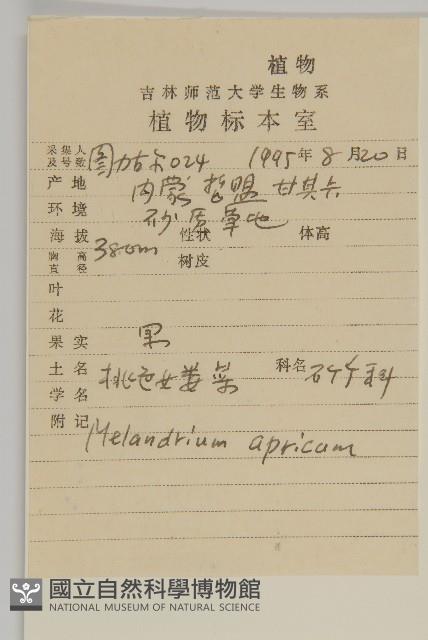 植物
吉林师范大学生物系
植物标本室
采集人及号数 图力古尔024 1995年8月20日
产地 内蒙哲盟甘其卡
环境 砂质草地
海拔 380m 性状 体高
胸高直径 树皮
叶
花
果实 果
土名 桃色女娄菜 科名 石竹科
学名
附记 Melandrium apricum
國立自然科學博物館
NATIONAL MUSEUM OF NATURAL SCIENCE